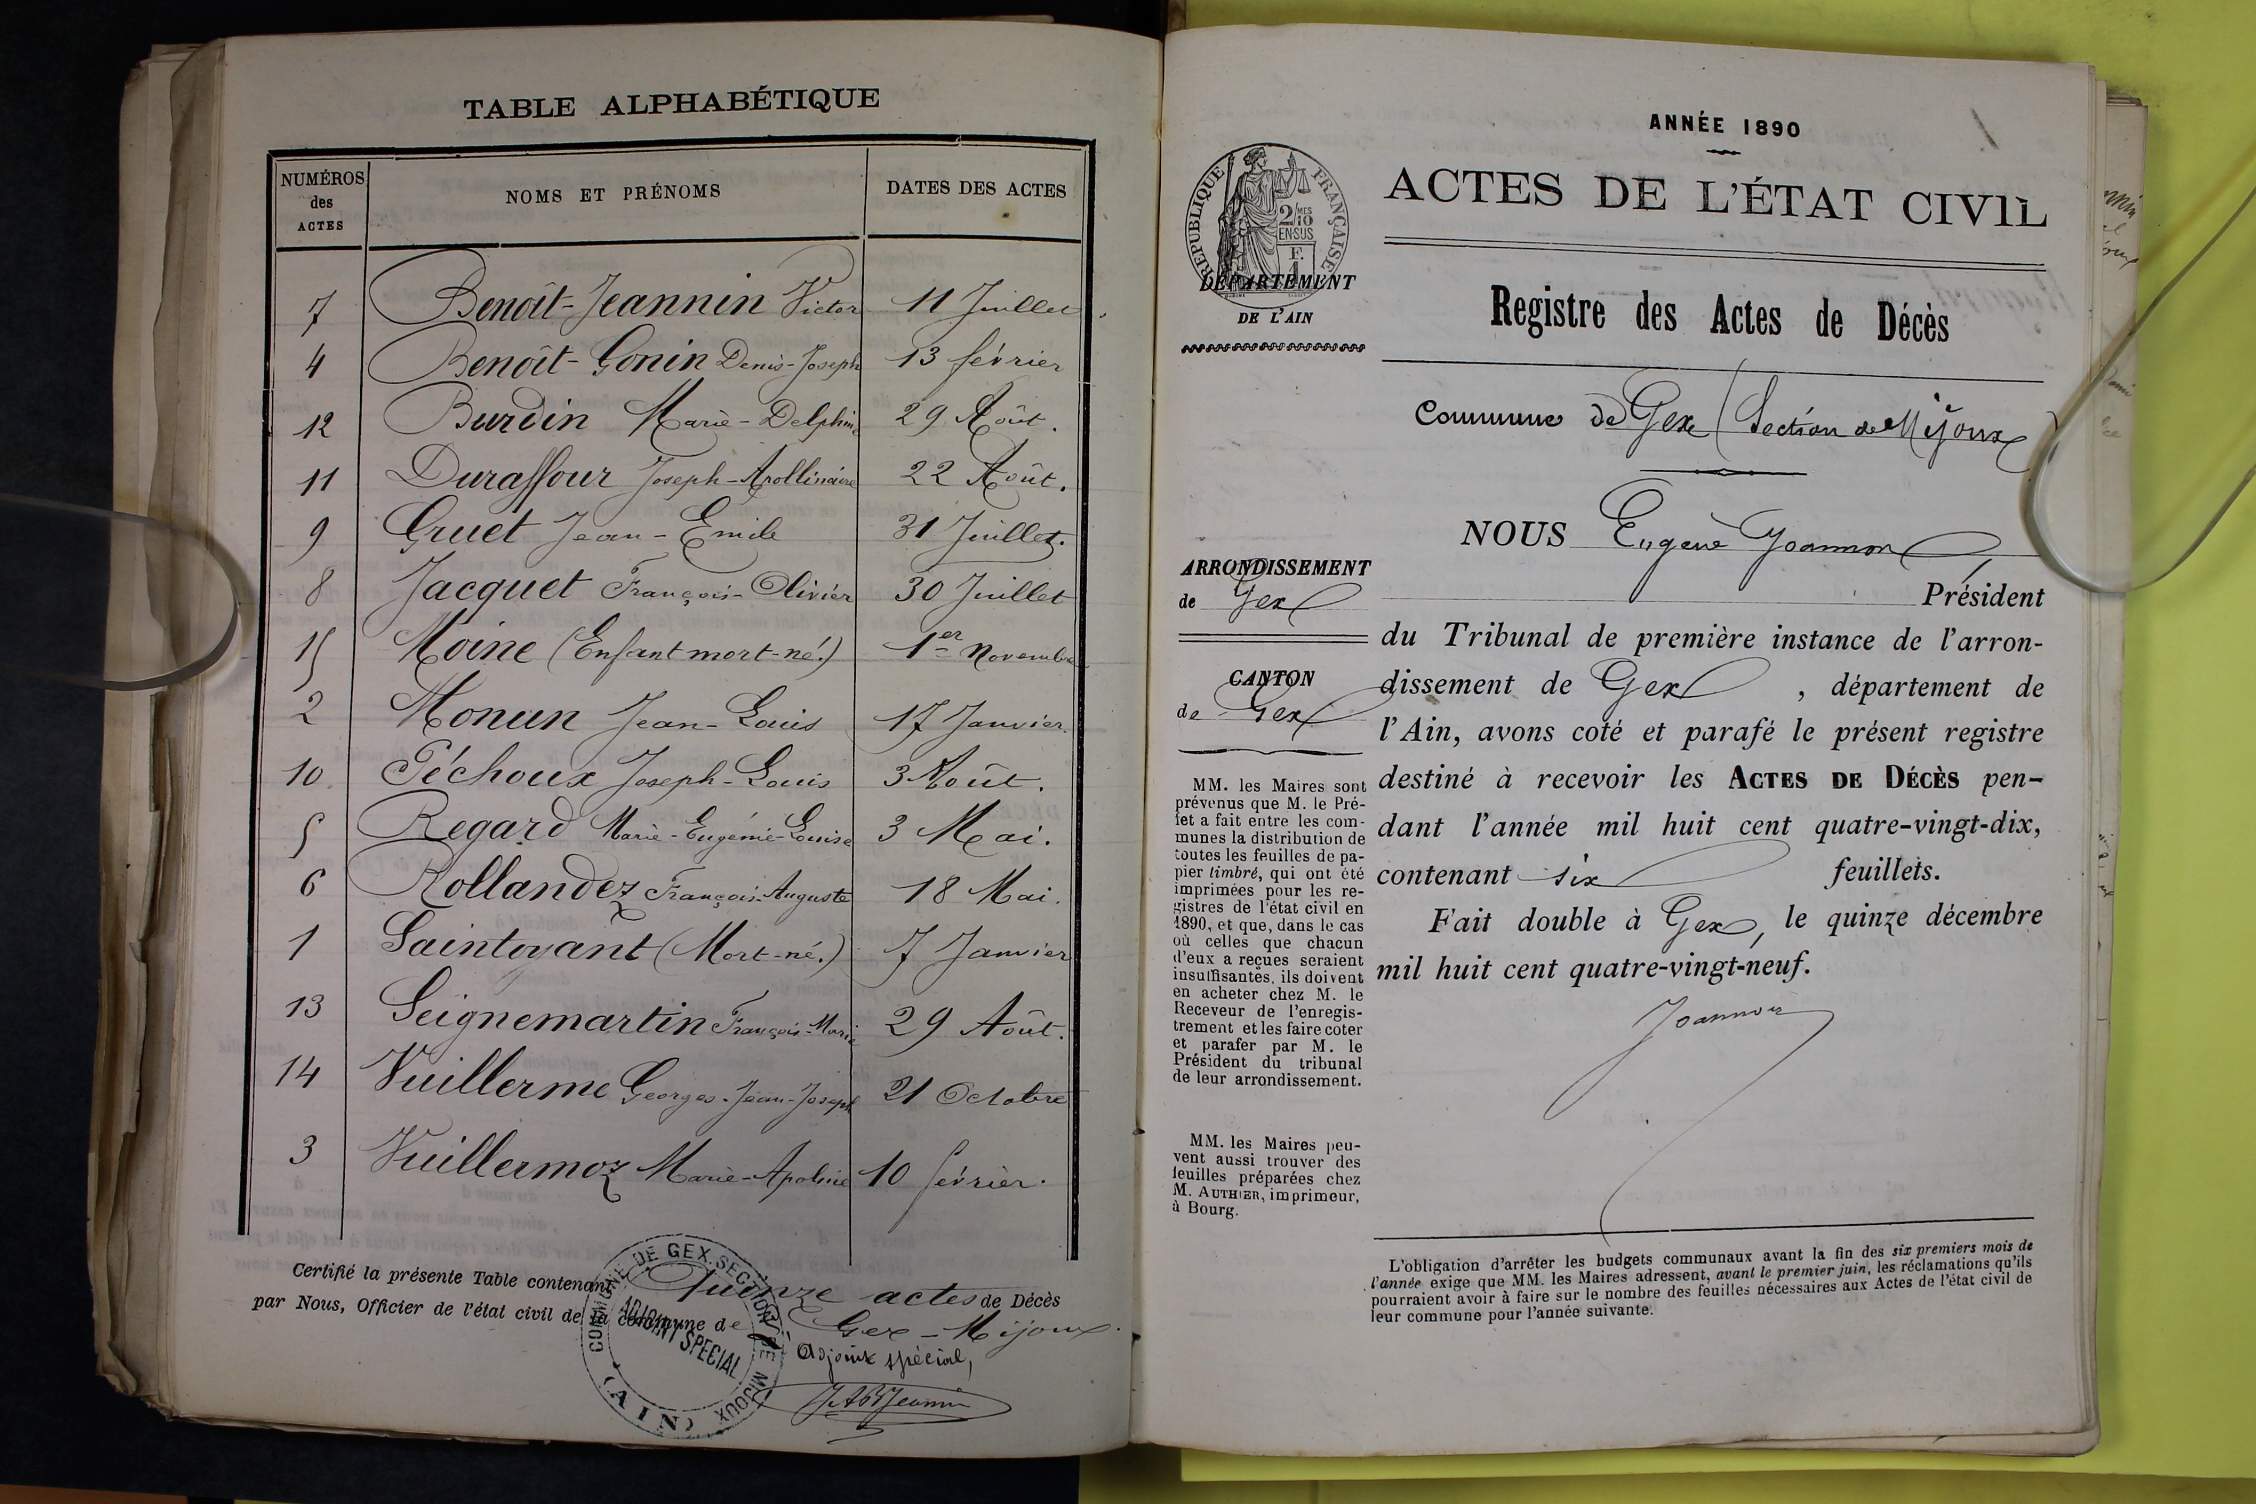 TABLE ALPHABÉTIQUE
NUMÉROS des ACTES
NOMS ET PRÉNOMS
DATES DES ACTES
7 Benoît-Jeannin Victor 11 Juillet
4 Benoît-Gonin Denis-Joseph 13 février
12 Burdin Marie-Delphine 29 Août.
11 Duraffour Joseph-Apollinaire 22 Août.
9 Gruet Jean-Emile 31 Juillet.
8 Jacquet François-Olivier 30 Juillet
15 Moine (Enfant mort-né.) 1er Novembre
2 Monun Jean-Louis 17 Janvier.
10 Péchoux Joseph-Louis 3 Août.
5 Regard Marie-Eugénie-Louise 3 Mai.
6 Rollandez François-Auguste 18 Mai.
1 Saintoyant (Mort-né.) 7 Janvier
13 Seignemartin François-Marie 29 Août.
14 Vuillerme Georges-Jean-Joseph 21 Octobre
3 Vuillermoz Marie-Apoline 10 février.
Certifié la présente Table contenant Quinze actes de Décès
par Nous, Officier de l'état civil de la commune de Gex-Mijoux.
adjoint spécial,
COMMUNE DE GEX. SECTION DE MIJOUX
ADJOINT SPECIAL
(AIN)
ANNÉE 1890
ACTES DE L'ÉTAT CIVIL
RÉPUBLIQUE FRANÇAISE
2/10 MES
EN SUS
F.
1
DÉPARTEMENT
DE L'AIN
Registre des Actes de Décès
Commune de Gex (Section de Mijoux)
NOUS Eugène Joannon,
Président
ARRONDISSEMENT
de Gex
CANTON
de Gex
du Tribunal de première instance de l'arron-
dissement de Gex, département de
l'Ain, avons coté et parafé le présent registre
destiné à recevoir les ACTES DE DÉCÈS pen-
dant l'année mil huit cent quatre-vingt-dix,
contenant six feuillets.
Fait double à Gex, le quinze décembre
mil huit cent quatre-vingt-neuf.
Joannon
MM. les Maires sont
prévenus que M. le Pré-
fet a fait entre les com-
munes la distribution de
toutes les feuilles de pa-
pier timbré, qui ont été
imprimées pour les re-
gistres de l'état civil en
1890, et que, dans le cas
où celles que chacun
d'eux a reçues seraient
insuffisantes, ils doivent
en acheter chez M. le
Receveur de l'enregis-
trement et les faire coter
et parafer par M. le
Président du tribunal
de leur arrondissement.
MM. les Maires peu-
vent aussi trouver des
feuilles préparées chez
M. AUTHIER, imprimeur,
à Bourg.
L'obligation d'arrêter les budgets communaux avant la fin des six premiers mois de
l'année exige que MM. les Maires adressent, avant le premier juin, les réclamations qu'ils
pourraient avoir à faire sur le nombre des feuilles nécessaires aux Actes de l'état civil de
leur commune pour l'année suivante.